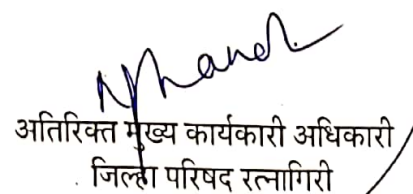 अतिरिक्त मुख्य कार्यकारी अधिकारी
जिल्हा परिषद रत्नागिरी